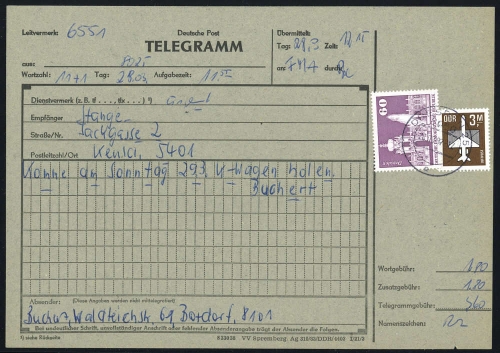 Leitvermerk: 6551
Deutsche Post
TELEGRAMM
Übermittelt:
Tag: 28.3 Zeit: 12 15
aus: 8025
an: durch:
Wortzahl: 11+1 Tag: 28.03 Aufgabezeit: 11
Dienstvermerk (z. B. tf . . . , tlx . . . ) ¹)
Empfänger Stange
Straße/Nr. Bachgasse 2
Postleitzahl/Ort 5401
Komme am Sonntag 29.3. U-wagen holen.
Buchert
60
DDR 3M
Absender: (Diese Angaben werden nicht mittelegrafiert)
Waldteichstr. 69 8101
Bei undeutlicher Schrift, unvollständiger Anschrift oder fehlender Absenderangabe trägt der Absender die Folgen.
¹) siehe Rückseite
VV Spremberg, Ag 310/80/DDR/4460
Wortgebühr: 1,80
Zusatzgebühr: 1,80
Telegrammgebühr: 3,60
Namenszeichen: